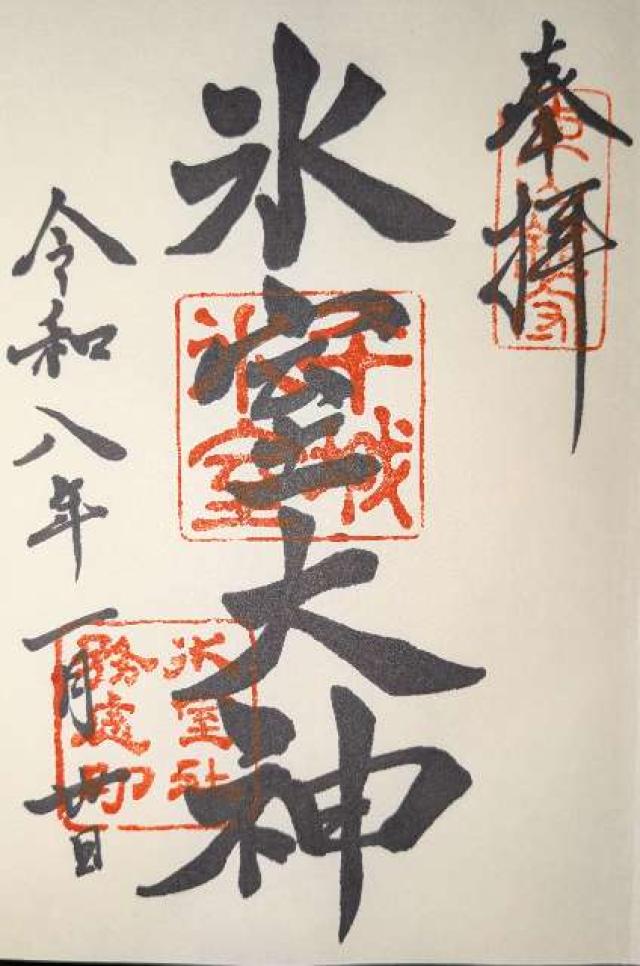 奉拝
氷室大神
平城
氷室
令和八年一月廿日
氷室社
務處印